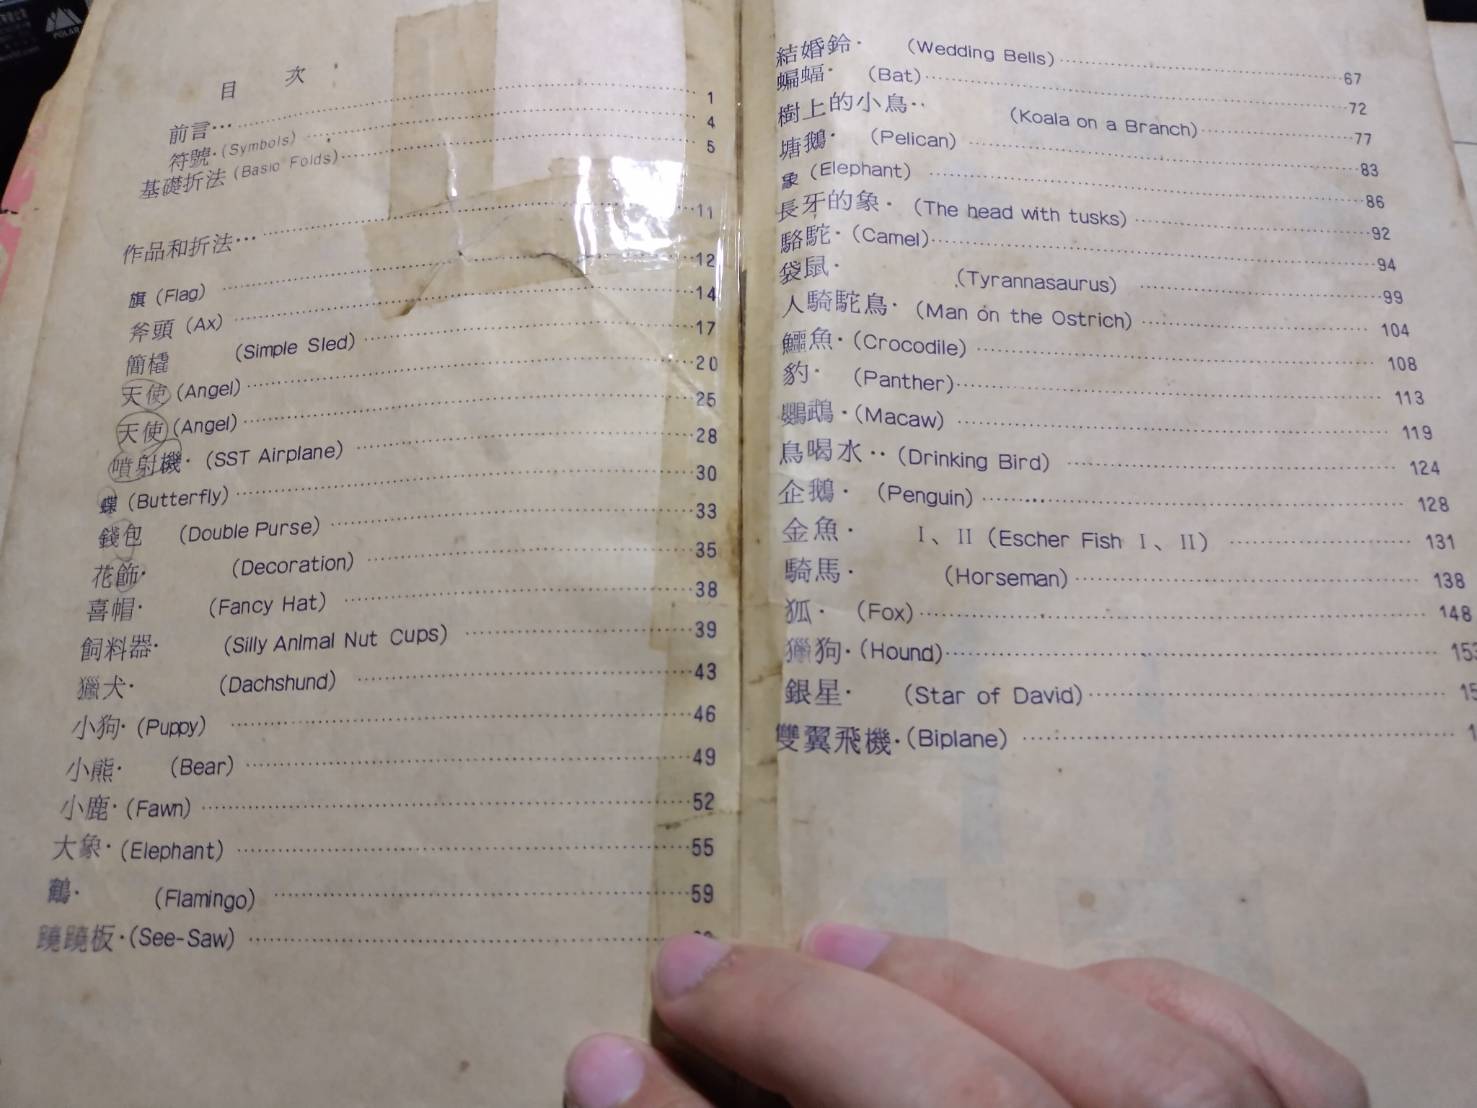 目 次
前言… 1
符號·(Symbols) 4
基礎折法 (Basic Folds) 5
作品和折法… 11
旗 (Flag) 12
斧頭 (Ax) 14
簡橇 (Simple Sled) 17
天使 (Angel) 20
天使 (Angel) 25
噴射機· (SST Airplane) 28
蝶 (Butterfly) 30
錢包 (Double Purse) 33
花飾· (Decoration) 35
喜帽· (Fancy Hat) 38
飼料器· (Silly Animal Nut Cups) 39
獵犬· (Dachshund) 43
小狗· (Puppy) 46
小熊· (Bear) 49
小鹿· (Fawn) 52
大象· (Elephant) 55
鶴· (Flamingo) 59
蹺蹺板·(See-Saw)
結婚鈴· (Wedding Bells) 67
蝙蝠· (Bat) 72
樹上的小鳥·· (Koala on a Branch) 77
塘鵝· (Pelican) 83
象 (Elephant) 86
長牙的象· (The head with tusks) 92
駱駝· (Camel) 94
袋鼠· (Tyrannasaurus) 99
人騎駝鳥· (Man on the Ostrich) 104
鱷魚· (Crocodile) 108
豹· (Panther) 113
鸚鵡· (Macaw) 119
鳥喝水·· (Drinking Bird) 124
企鵝· (Penguin) 128
金魚· I、II (Escher Fish I、II) 131
騎馬· (Horseman) 138
狐· (Fox) 148
獵狗· (Hound) 153
銀星· (Star of David)
雙翼飛機· (Biplane)
POLAR